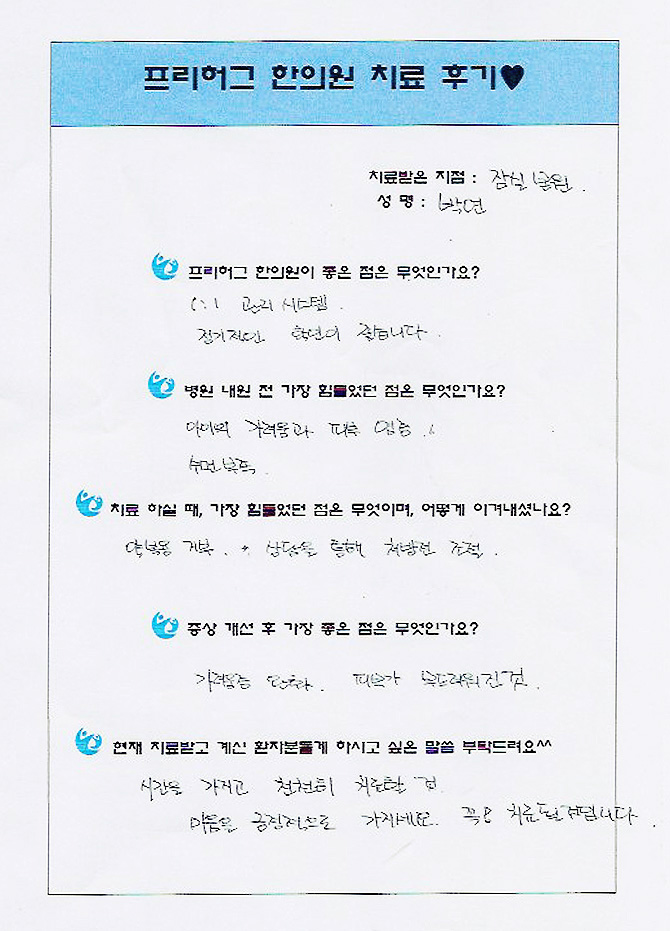 프리허그 한의원 치료 후기♥
치료받은 지점 : 잠실 본원.
성 명 : 박연
프리허그 한의원이 좋은 점은 무엇인가요?
1:1 관리 시스템.
정기적인 학연이 좋습니다.
병원 내원 전 가장 힘들었던 점은 무엇인가요?
아이의 가려움과 피부 염증.
수면부족.
치료 하실 때, 가장 힘들었던 점은 무엇이며, 어떻게 이겨내셨나요?
약복용 거부. 상담을 통해 처방전 조절.
증상 개선 후 가장 좋은 점은 무엇인가요?
가려움증 완화. 피부가 부드러워진 것.
현재 치료받고 계신 환자분들게 하시고 싶은 말씀 부탁드려요^^
시간을 가지고 천천히 치료할 것.
마음을 긍정적으로 가지세요. 꼭 치료될겁니다.